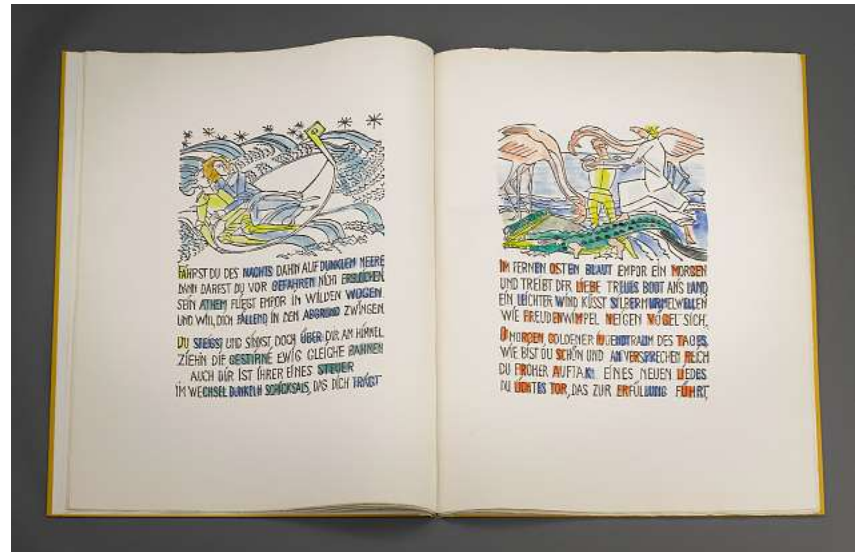 FÄHRST DU DES NACHTS DAHIN AUF DUNKLEM MEERE
DANN DARFST DU VOR GEFAHREN NICHT ERBLEICHEN.
SEIN ATHEM FLIEGT EMPOR IN WILDEN WOGEN
UND WILL DICH FALLEND IN DEN ABGRUND ZWINGEN.
DU STEIGST UND SINKST, DOCH ÜBER DIR AM HIMMEL
ZIEHN DIE GESTIRNE EWIG GLEICHE BAHNEN
AUCH DIR IST IHRER EINES STEUER
IM WECHSEL DUNKELN SCHICKSALS, DAS DICH TRÄGT
IM FERNEN OSTEN BLAUT EMPOR EIN MORGEN
UND TREIBT DER LIEBE TREUES BOOT ANS LAND,
EIN LEICHTER WIND KÜSST SILBERMURMELWELLEN
WIE FREUDENWIMPEL NEIGEN VÖGEL SICH.
O MORGEN, GOLDENER JUGENDTRAUM DES TAGES,
WIE BIST DU SCHÖN UND AN VERSPRECHEN REICH
DU FROHER AUFTAKT EINES NEUEN LIEDES
DU LICHTES TOR, DAS ZUR ERFÜLLUNG FÜHRT,